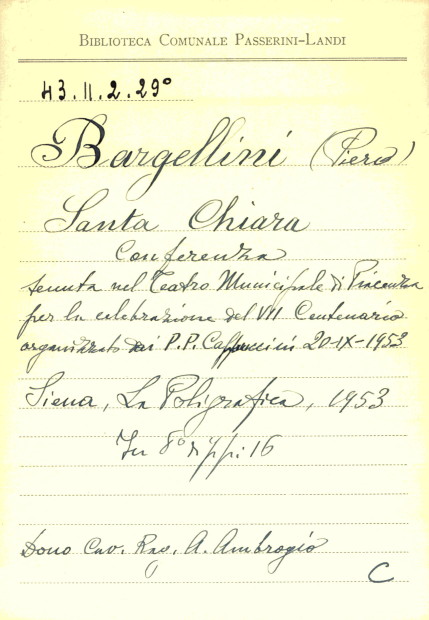 BIBLIOTECA COMUNALE PASSERINI-LANDI
43.II.2.29°
Bargellini (Piero)
Santa Chiara
Conferenza
tenuta nel Teatro Municipale di Piacenza
per la celebrazione del VII Centenario
organizzato dai P.P. Cappuccini 20-IX-1953
Siena, La Poligrafica, 1953
In 8° di pp. 16
Dono Cav. Rag. A. Ambrogio
C